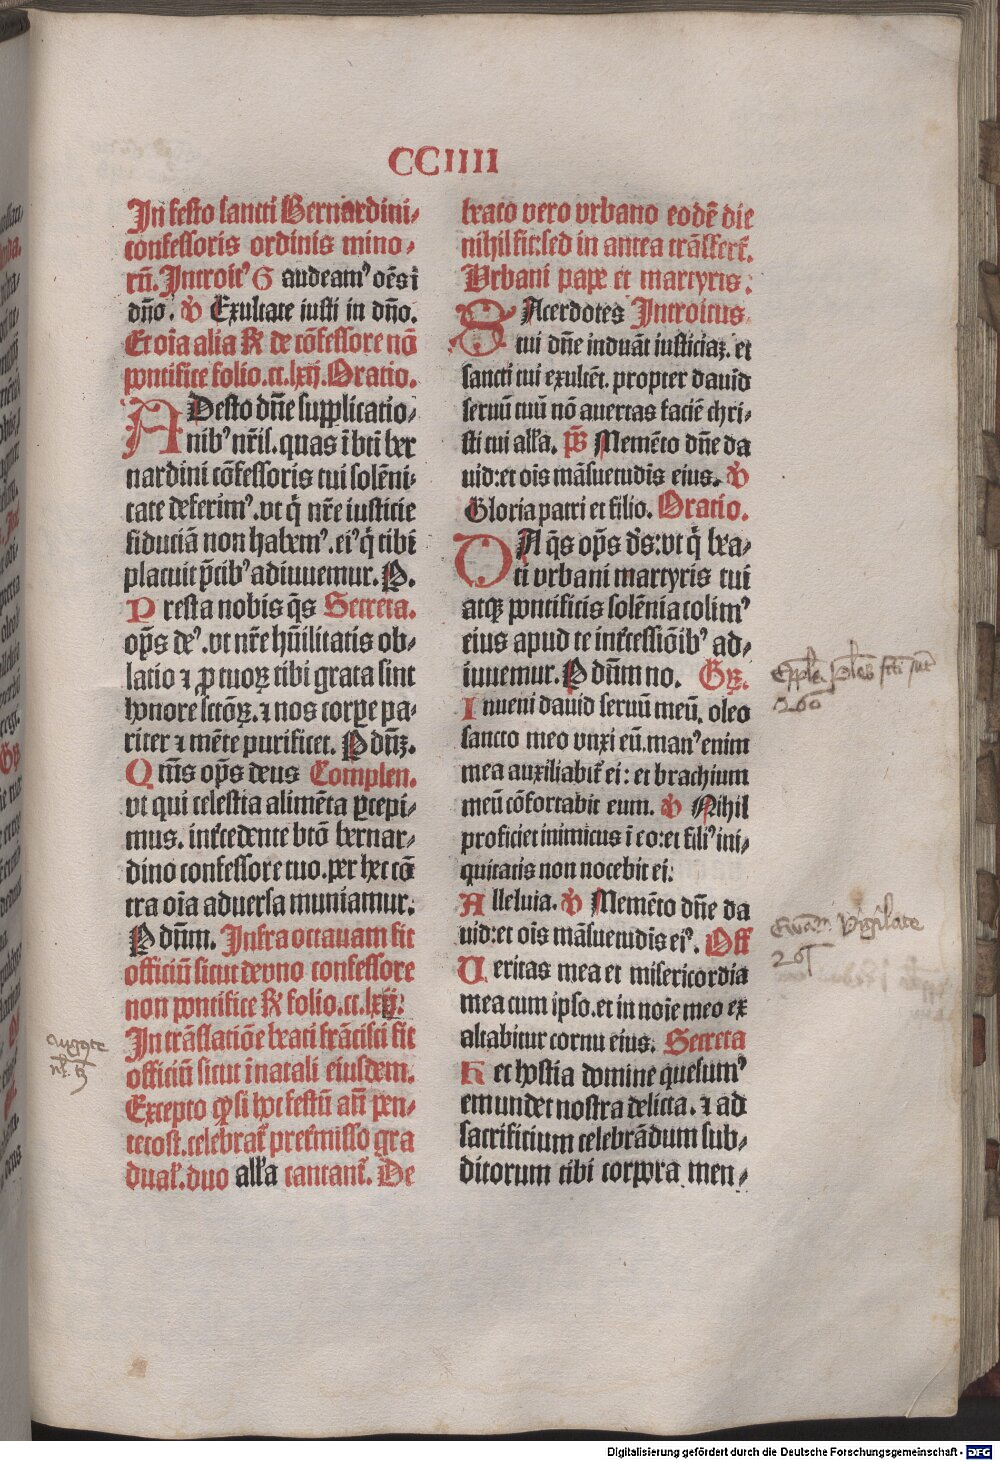 CCIIII
In festo sancti Bernardini⸗
confessoris ordinis mino⸗
rū. Introitꝰ Gaudeamꝰ oēs ī
dño. ℣ Exultate iusti in dño.
Et oīa alia R̄ de cōfessore nō
pontifice folio.cc.lxij. Oratio.
ADesto dñe supplicatio⸗
nibꝰ nr̄is. quas ī bt̄i ber
nardini cōfessoris tui solēni⸗
tate deferimꝰ. vt q̄ nr̄e iusticie
fiduciā non habemꝰ. eiꝰ q̄ tibi
placuit p̄cibꝰ adiuuemur. P.
Presta nobis q̄s Secreta.
op̄s deꝰ. vt nr̄e hūilitatis ob⸗
latio ⁊ ꝓ tuoꝝ tibi grata sint
honore sctōꝝ. ⁊ nos corpe pa⸗
riter ⁊ mēte purificet. P dn̄ꝫ.
Qm̄s op̄s deus Complen.
vt qui celestia alimēta ꝑcepi⸗
mus. int̄cedente btō bernar⸗
dino confessore tuo. per hec cō
tra oīa aduersa muniamur.
P dn̄m. Infra octauam fit
officiū sicut de vno confessore
non pontifice R̄ folio.cc.lxij.
In trāslatiōe beati frācisci fit
officiū sicut ī natali eiusdem.
Excepto ꝙ si hoc festū añ pen⸗
tecost. celebrat̄ pret̄misso gra
dual̄. duo all̄a cantant̄. De
beato vero vrbano eodē die
nihil fit: sed in antea trāsfert̄.
Vrbani pape et martyris:
SAcerdotes Introitus
tui dñe induāt iusticiaꝫ. et
sancti tui exultēt. propter dauid
seruū tuū nō auertas faciē chri⸗
sti tui all̄a. p̄s Memēto dñe da
uid: et oīs māsuetudīs eius. ℣
Gloria patri et filio. Oratio.
DA q̄s op̄s d̄s: vt q̄ bea⸗
ti vrbani martyris tui
atqꝫ pontificis solēnia colimꝰ
eius apud te int̄cessiōibꝰ ad⸗
iuuemur. P dn̄m no. Gꝝ.
Inueni dauid seruū meū. oleo
sancto meo vnxi eū. manꝰ enim
mea auxiliabit̄ ei: et brachium
meū cōfortabit eum. ℣ Nihil
proficiet inimicus ī eo: et filiꝰ ini⸗
quitatis non nocebit ei:
Alleluia. ℣ Memēto dñe da
uid: et oīs māsuetudīs eiꝰ. Off
Ueritas mea et misericordia
mea cum ipso. et in noīe meo ex
altabitur cornu eius. Secreta
Hec hostia domine quesumꝰ
emundet nostra delicta. ⁊ ad
sacrificium celebrādum sub⸗
ditorum tibi corpora men⸗
260
Ewan. Vigilate
261
Digitalisierung gefördert durch die Deutsche Forschungsgemeinschaft - DFG